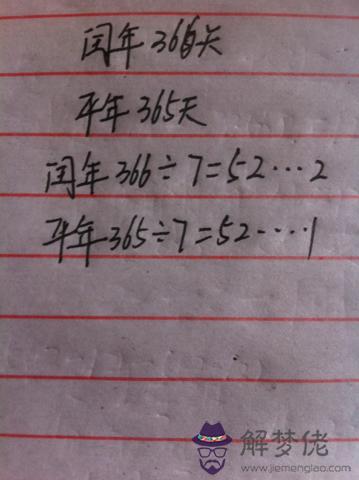 闰年 366天
平年 365天
闰年 366÷7=52…2
平年 365÷7=52····1
解梦佬
www.jiemenglao.com